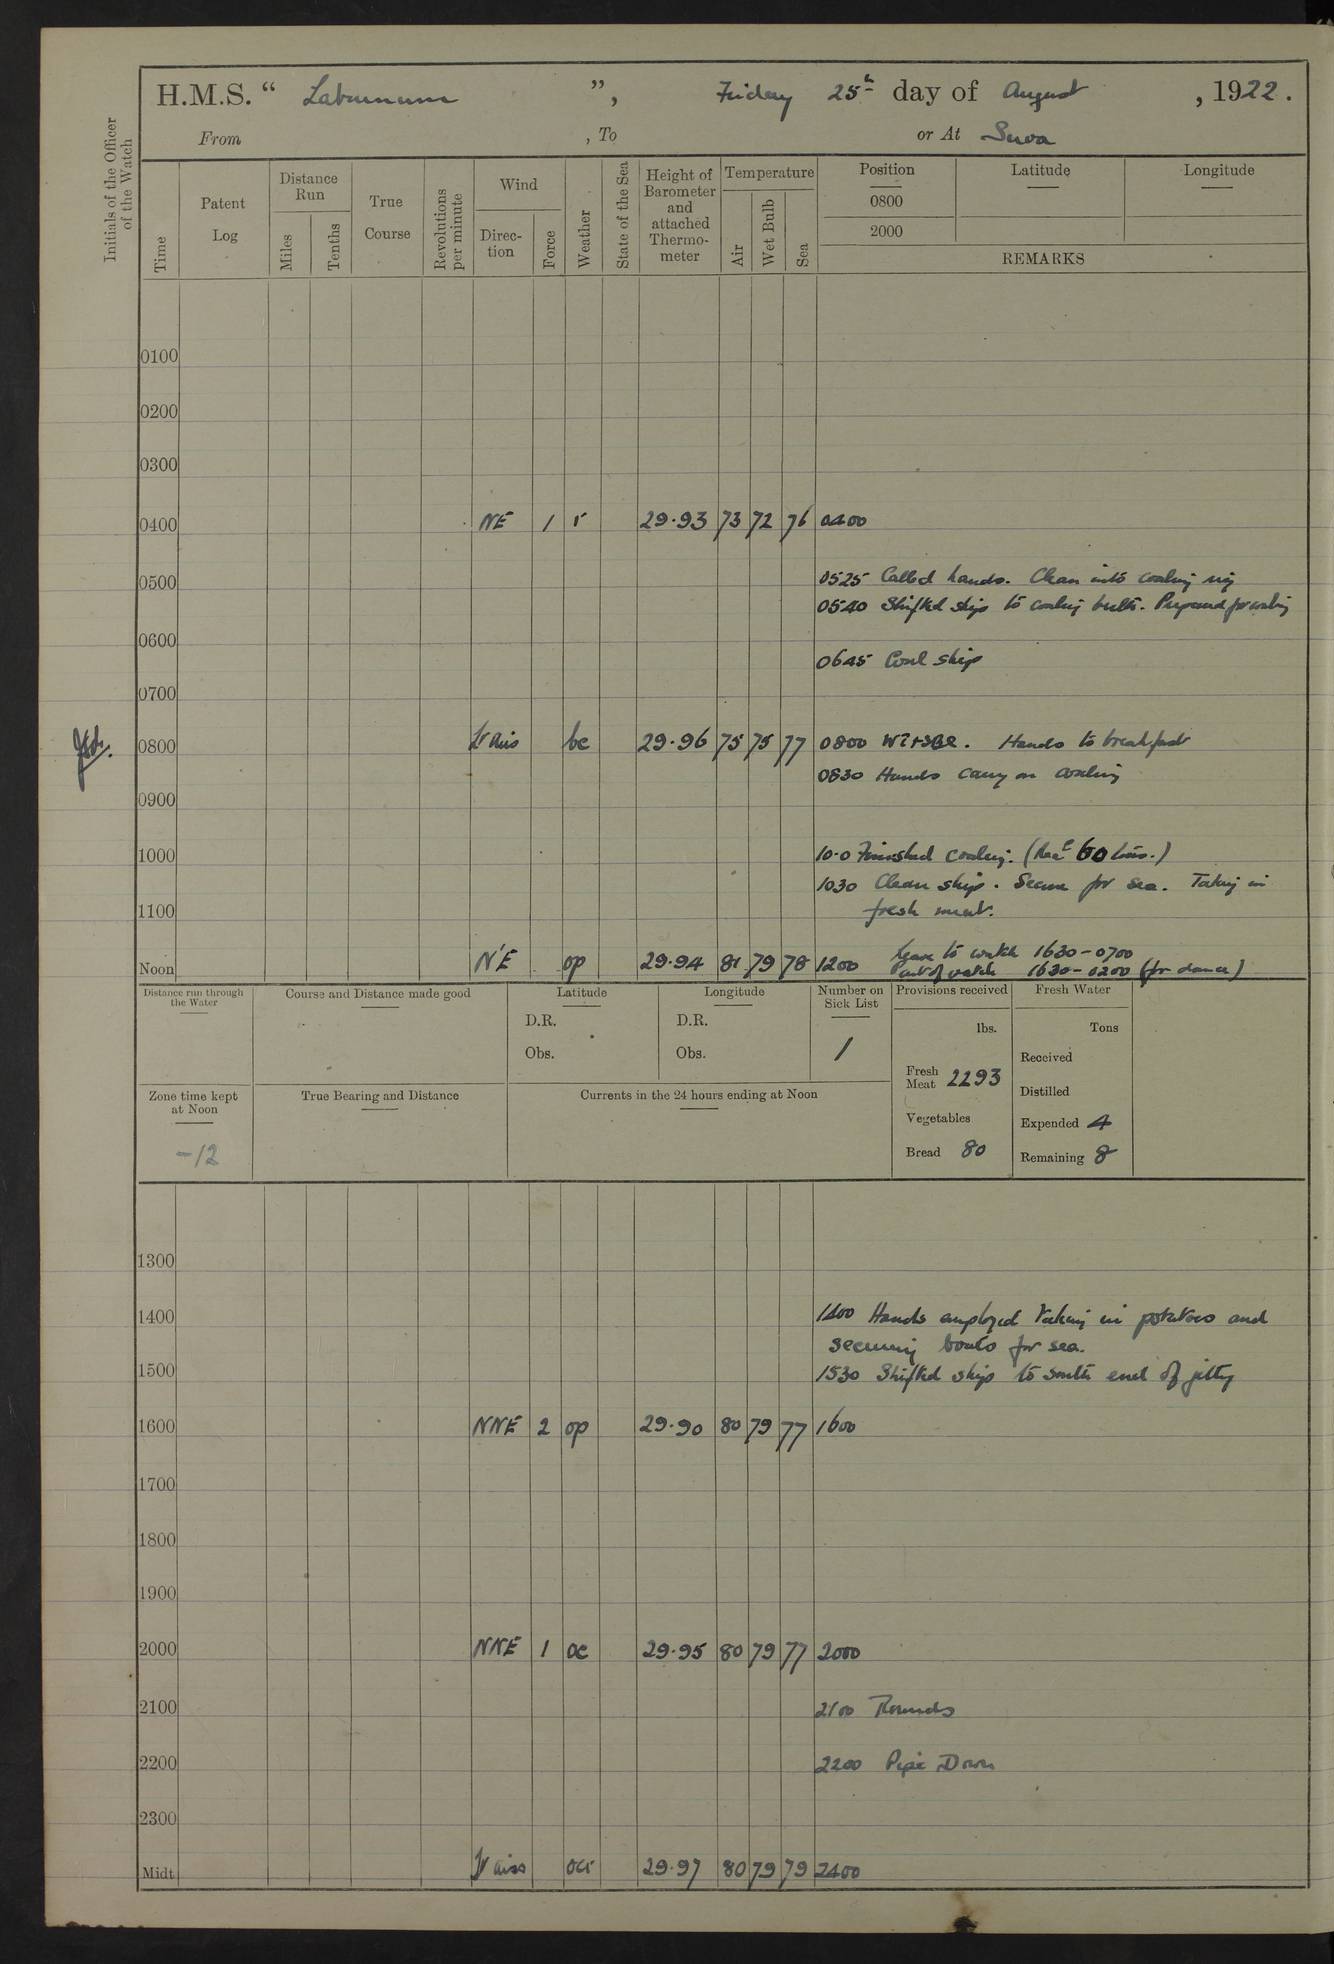 H.M.S. “ Laburnum ”, Friday 25th day of August , 1922.
From , To or At Suva
Initials of the Officer of the Watch
Time
Patent Log
Distance Run
Miles
Tenths
True Course
Revolutions per minute
Wind
Direction
Force
Weather
State of the Sea
Height of Barometer and attached Thermometer
Temperature
Air
Wet Bulb
Sea
Position
0800
2000
Latitude
Longitude
REMARKS
0100
0200
0300
0400 NE 1 r 29.93 73 72 76 0400
0500 0525 Called hands. Clean into coaling rig
0540 Shifted ship to coaling berth. Prepared for coaling
0600
0645 Coal ship
0700
0800 Lt airs bc 29.96 75 75 77 0800 Hands to breakfast
0830 Hands carry on coaling
0900
1000 10.0 Finished coaling. (Recd 60 tons.)
1030 Clean ship. Secure for sea. Taking in
1100 fresh meat.
Leave to watch 1630-0700
Noon N'E op 29.94 81 79 78 1200 Part of watch 1630-0200 (for dance)
Distance run through the Water
Course and Distance made good
Latitude
D.R.
Obs.
Longitude
D.R.
Obs.
Number on Sick List
1
Provisions received
lbs.
Fresh Meat 2293
Vegetables
Bread 80
Fresh Water
Tons
Received
Distilled
Expended 4
Remaining 8
Zone time kept at Noon
-12
True Bearing and Distance
Currents in the 24 hours ending at Noon
1300
1400 1400 Hands employed taking in potatoes and
securing boats for sea.
1500 1530 Shifted ship to south end of jetty
1600 NNE 2 op 29.90 80 79 77 1600
1700
1800
1900
2000 NNE 1 oc 29.95 80 79 77 2000
2100 2100 Rounds
2200 2200 Pipe Down
2300
Midt. Lt airs 29.97 80 79 79 2400